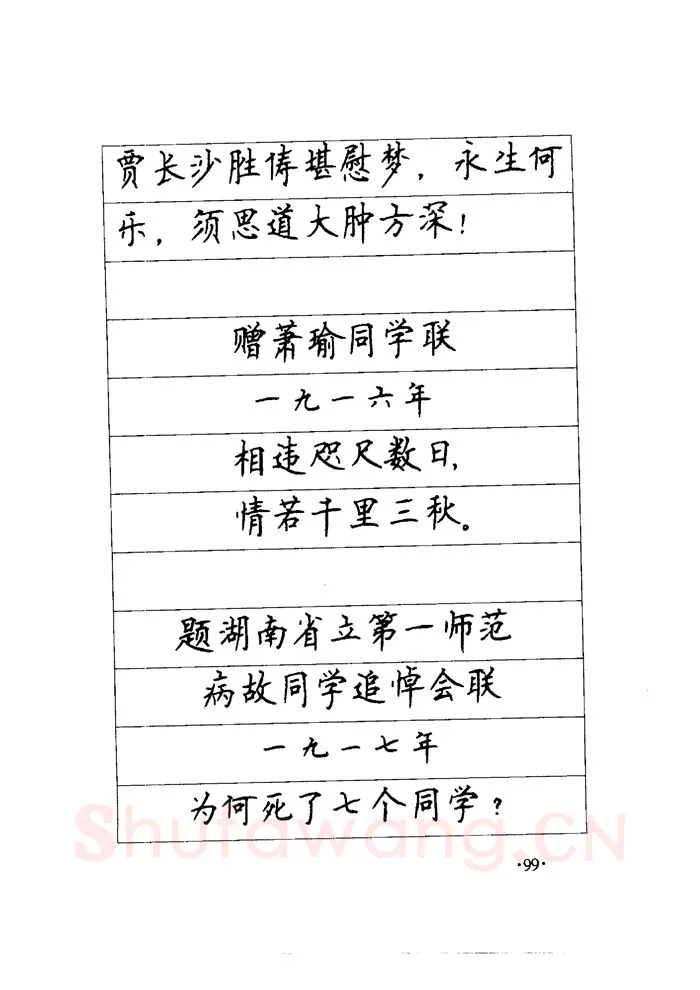 贾长沙胜俦堪慰梦，永生何
乐，须思道大肿方深！
赠萧瑜同学联
一九一六年
相违咫尺数日，
情若千里三秋。
题湖南省立第一师范
病故同学追悼会联
一九一七年
为何死了七个同学？
Shufawang.CN
·99·